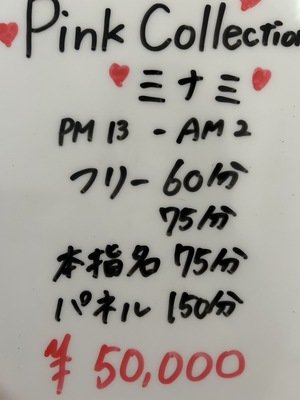 Pink Collection
ミナミ
PM 13 - AM 2
フリー 60分
75分
本指名 75分
パネル 150分
¥ 50,000